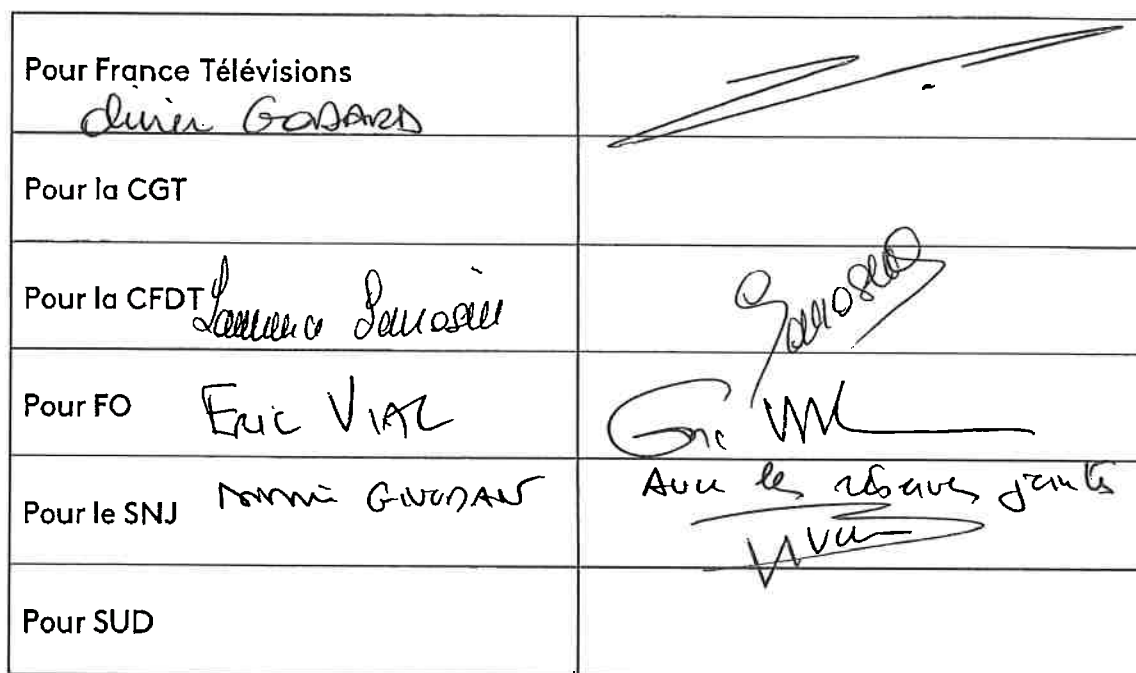 Pour France Télévisions
Olivier GODARD
Pour la CGT
Pour la CFDT Laurence
Pour FO Eric VIAL
Eric
Pour le SNJ
Avec les réserves jointes
Pour SUD